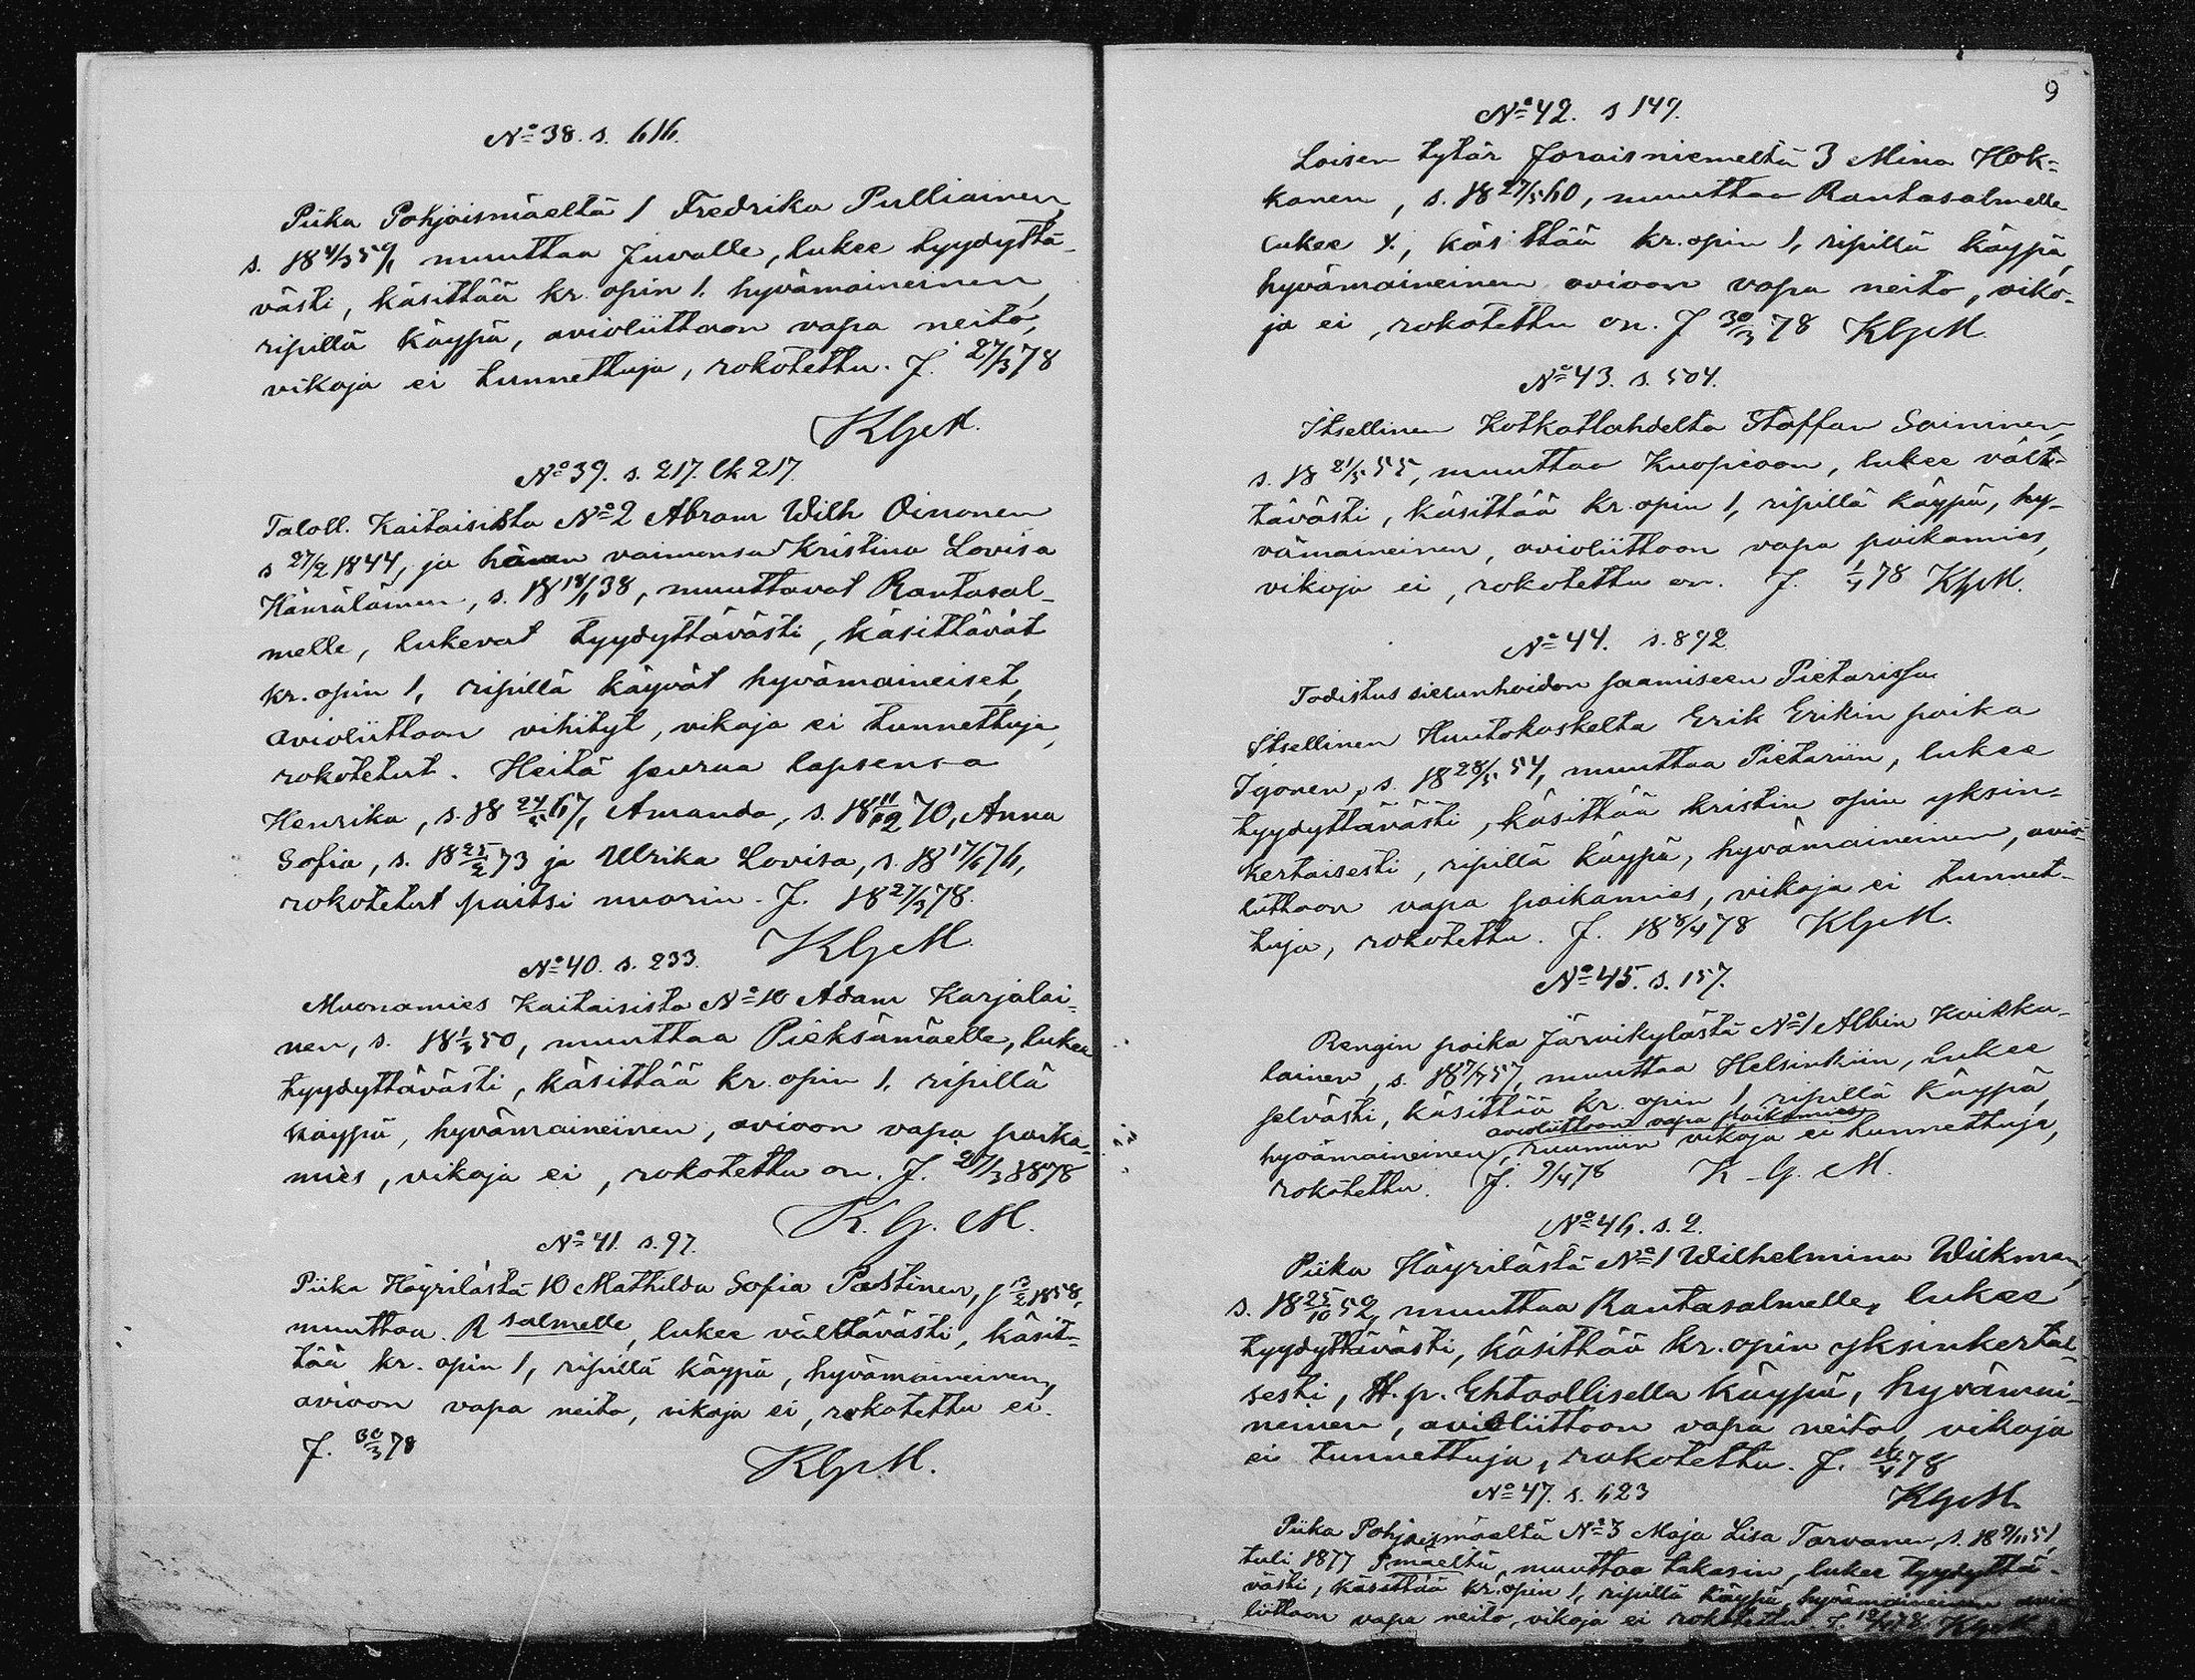 No 38. s. 616.
Piika Pohjoismäeltä 1 Fredrika Pulliainen,
s. 18 4/3 59, muuttaa Juvalle, lukee tyydyttä-
västi, käsittää kr. opin 1. hyvämaineinen,
ripillä käypä, avioliittoon vapa neito,
vikoja ei tunnettuja, rokotettu. J. 27/3 78
KGM.
No 39. s. 217. lk 217.
Taloll. Kaitaisista No 2 Abram Wilh Oinonen
s 27/2 1844, ja hänen vaimonsa Kristina Lovisa
Hämäläinen, s. 18 18/1 38, muuttavat Rantasal-
melle, lukevat tyydyttävästi, käsittävät
kr. opin 1, ripillä käyvät hyvämaineiset,
avioliittoon vihityt, vikoja ei tunnettuja,
rokotetut. Heitä seuraa lapsensa
Henrika, s. 18 24/5 67, Amanda, s. 18 11/12 70, Anna
Sofia, s. 18 25/2 73 ja Ulrika Lovisa, s. 18 17/6 76,
rokotetut paitsi nuorin. J. 18 27/3 78.
KGM.
No 40. s. 233.
Muonamies Kaitaisista No 10 Adam Karjalai-
nen, s. 18 1/3 50, muuttaa Pieksämäelle, lukee
tyydyttävästi, käsittää kr. opin 1. ripillä
käypä, hyvämaineinen, avioon vapa poika-
mies, vikoja ei, rokotettu on. J. 27/3 1878
K. G. M.
No 41. s. 97.
Piika Häyrilästä 10 Mathilda Sofia Pastinen, s 13/2 1858,
muuttaa R salmelle, lukee välttävästi, käsit-
tää kr. opin 1, ripillä käypä, hyvämaineinen,
avioon vapa neito, vikoja ei, rokotettu ei.
J. 30/3 78
KGM.
9
No 42. s 149.
Loisen tytär Joraisniemeltä 3 Mina Hok-
kanen, s. 18 27/5 60, muuttaa Rantasalmelle
lukee t., käsittää kr. opin 1, ripillä käypä,
hyvämaineinen avioon vapa neito, viko-
ja ei, rokotettu on. J 30/3 78 KGM.
No 43. s. 504.
Itsellinen Kotkatlahdelta Staffan Saininen,
s. 18 21/5 55, muuttaa Kuopioon, lukee vält-
tävästi, käsittää kr. opin 1, ripillä käypä, hy-
vämaineinen, avioliittoon vapa poikamies,
vikoja ei, rokotettu on. J. 1/4 78 KGM.
No 44. s. 892
Todistus sielunhoidon saamiseen Pietarissa
Itsellinen Huutokoskelta Erik Erikin poika
Igonen, s. 18 28/5 54, muuttaa Pietariin, lukee
tyydyttävästi, käsittää kristin opin yksin-
kertaisesti, ripillä käypä, hyvämaineinen, avio-
liittoon vapa poikamies, vikoja ei tunnet-
tuja, rokotettu. J. 18 8/4 78 KGM.
No 45. s. 157.
Rengin poika Järvikylästä No 1 Albin Koikka-
lainen, s. 18 17/7 57, muuttaa Helsinkiin, lukee
selvästi, käsittää kr. opin 1, ripillä käypä,
avioliittoon vapa poikamies
hyvämaineinen, ruumiin vikoja ei tunnettuja,
rokotettu. J. 9/4 78 K. G. M.
No 46. s. 2.
Piika Häyrilästä No 1 Wilhelmina Wilkman,
s. 18 25/10 52, muuttaa Rantasalmelle, lukee
tyydyttävästi, käsittää kr. opin yksinkertai-
sesti, H. p. Ehtoollisella käypä, hyvämai-
neinen, avioliittoon vapa neito, vikoja
ei tunnettuja, rokotettu. J. /4 78
KGM.
No 47. s. 623
Piika Pohjoismäeltä No 3 Maja Lisa Tarvanen, s. 18 9/11 51,
tuli 1877 P mäeltä, muuttaa takasin, lukee tyydyttä-
västi, käsittää kr. opin 1, ripillä käypä, hyvämaineinen avio-
liittoon vapa neito, vikoja ei rokotettu. J. 12/4 78. KGM